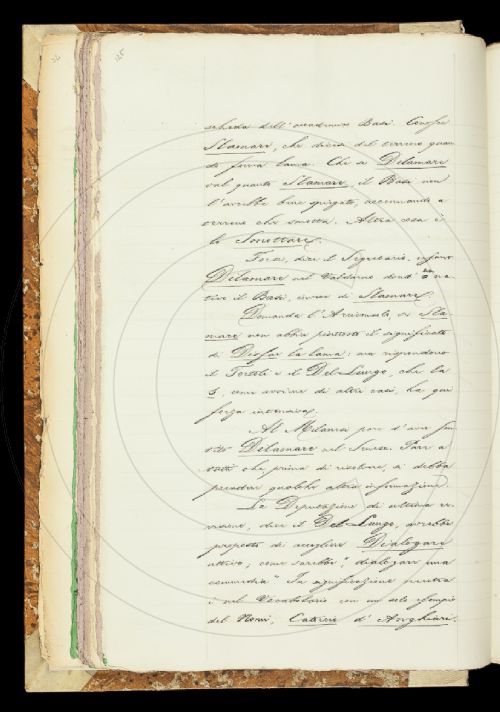 125
scheda dell'accademico Basi. Confer
Slamare, che dicesi del terreno quan
do forma lama. Che se Delamare
val quanto Slamare, il Basi non
l'avrebbe bene spiegato, accennando a
terreno che smotta. Altra cosa è
lo Smottare.
Forse, dice il Segretario,
Delamare nel Valdarno dond' è na-
tivo il Basi, invece di Slamare.
Domanda l'Arciconsolo, se Sla-
mare non abbia piuttosto il significato
di Disfar la lama: ma rispondono
il Tortoli e il Del-Lungo, che la
S, come avviene di altri casi, ha qui
forza intensiva.
Al Milanesi pare d'aver sen
tito Dilamare nel Senese. Pare a
tutti che, prima di risolvere, si debba
prendere qualche altra informazione.
La Deputazione di ultima re-
visione, dice il Del-Lungo, avrebbe
proposto di accogliere Dialogare
attivo; come sarebbe: "dialogare una
commedia." In significazione neutra
è nel Vocabolario con un solo esempio
del Nomi, Catorcio d'Anghiari.